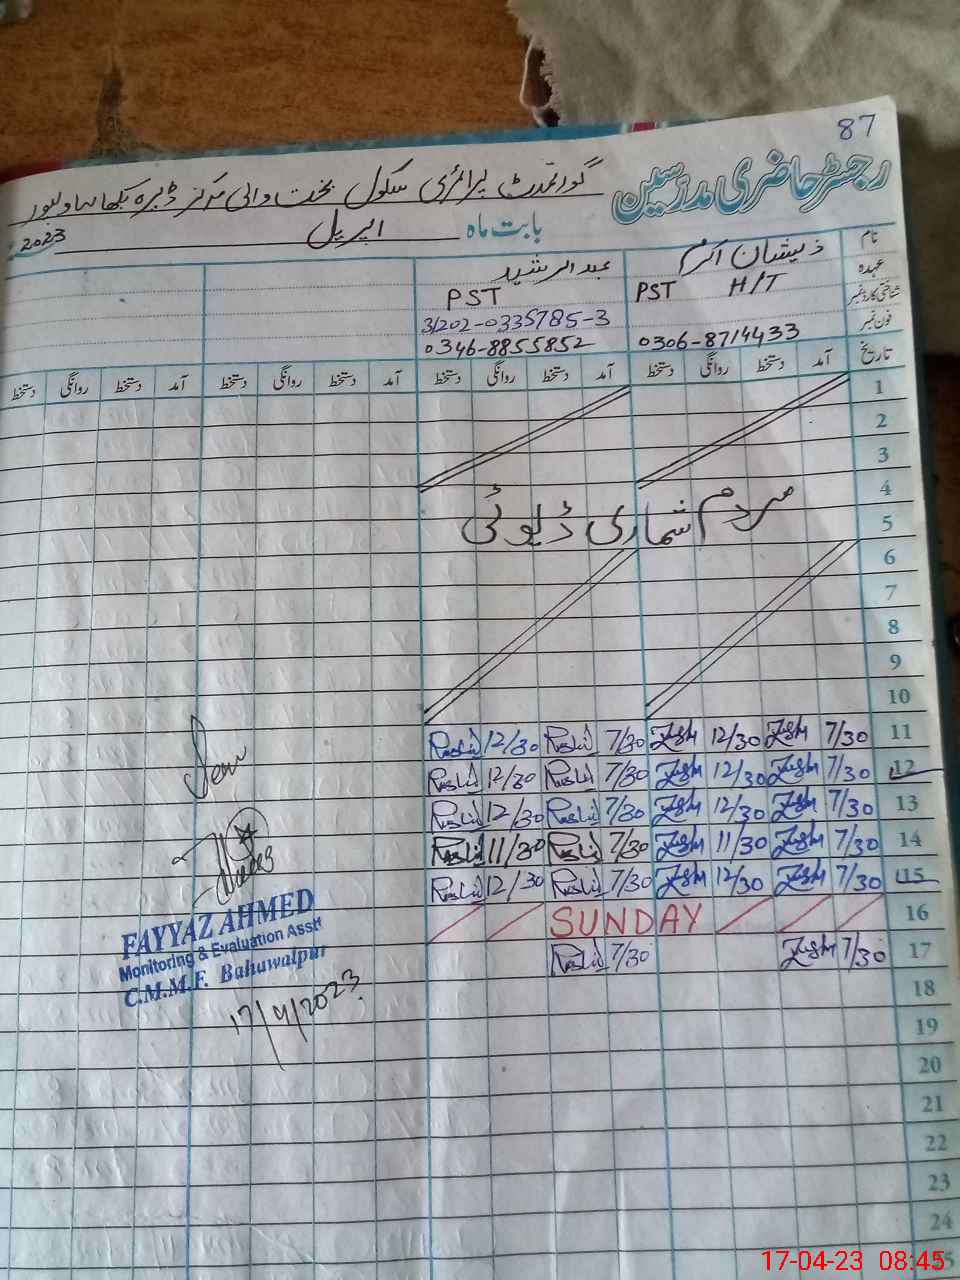 87
رجسٹر حاضری مدرسین
گورنمنٹ پرائمری سکول بخت والی مرکز ڈیرہ بکھا بہاولپور
بابت ماہ اپریل 2023
نام ذیشان اکرم عبدالرشید
عہدہ PST H/T PST
شناختی کارڈ نمبر 31202-0335785-3
فون نمبر 0306-8714433 0346-8855852
تاریخ آمد دستخط روانگی دستخط آمد دستخط روانگی دستخط آمد دستخط روانگی دستخط آمد دستخط روانگی دستخط
1
2
3
4
مردم شماری ڈیوٹی
5
6
7
8
9
10
11 7/30 12/30 7/30 Rashid 12/30 Rashid
12 7/30 12/30 7/30 Rashid 12/30 Rashid
13 7/30 12/30 7/30 Rashid 12/30 Rashid
14 7/30 11/30 7/30 Rashid 11/30 Rashid
15 7/30 12/30 7/30 Rashid 12/30 Rashid
16 SUNDAY
17 7/30 7/30 Rashid
18
19
20
21
22
23
24
FAYYAZ AHMED
Monitoring & Evaluation Asstt
C.M.M.F. Bahawalpur
17/4/2023
17-04-23 08:45